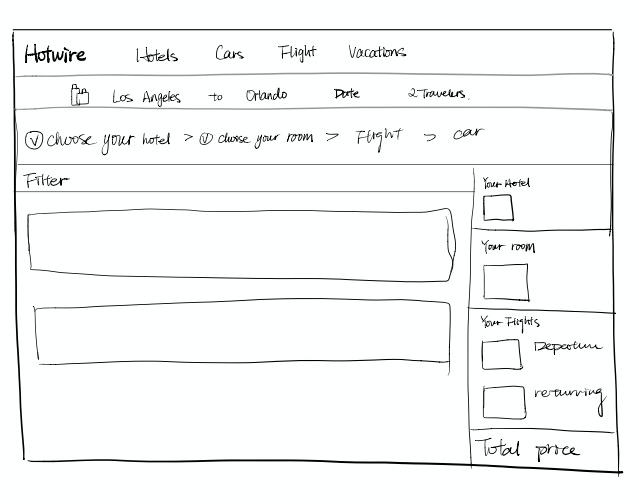 Hotwire Hotels Cars Flight Vacations
Los Angeles to Orlando Date 2 Travelers.
✓ choose your hotel > ✓ choose your room > Flight > car
Filter
Your Hotel
Your room
Your Flights
Departure
returning
Total price